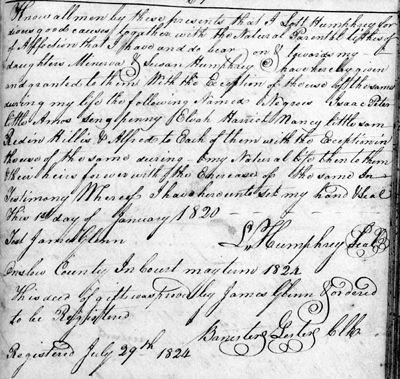 Know all men by these presents that I Lott Humphrey for
divers good causes, together with the Natural Parental ties of
of Affection that I have and do bear on & towards my
daughters Minerva & Susan Humphrey have hereby given
and granted to them With the Exception of the use of the same
during my life the following Named Negroes Isaac Peter
little Amos penny Noah Harriet Nancy little sam
Hillis & Alfred to Each of them with the Exception
the use of the same during my Natural life then to them
& their heirs forever with the Encrease of the same In
Testimony Whereof I have hereunto set my hand & seal
This 1st day of January 1820
Test James Glenn L. Humphrey Seal
Onslow County In Court may term 1824
This deed of gift was proved by James Glenn & ordered
to be Registered
Banister Lester Clk
Registered July 29th 1824